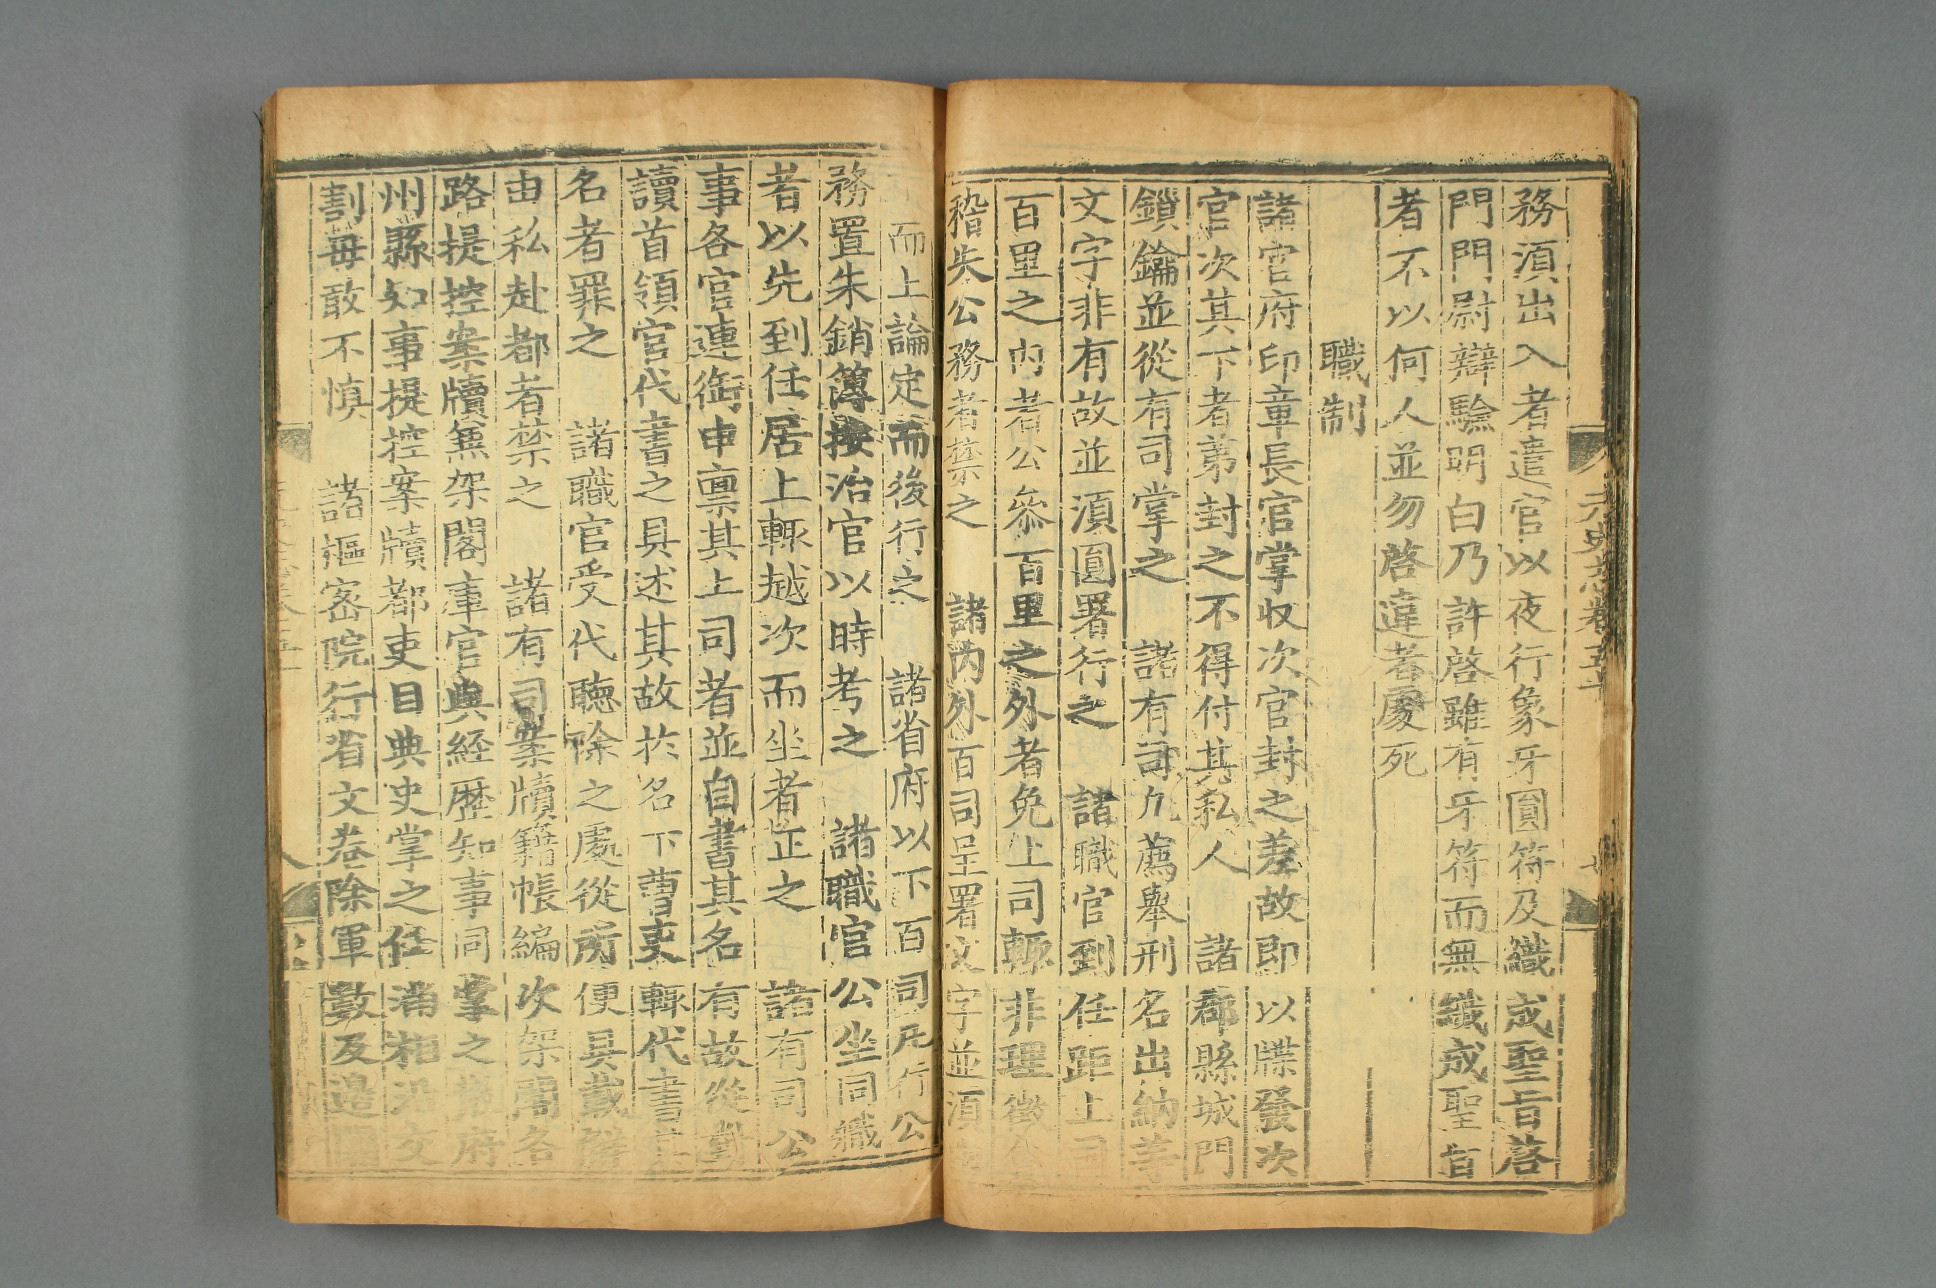 元史志卷五十
務須出入者遣官以夜行象牙圓符及織成聖旨啓
門門尉辯驗明白乃許啓雖有牙符而無織成聖旨
者不以何人並勿啓違者處死
職制
諸官府印章長官掌收次官封之差故即以牒發次
官次其下者第封之不得付其私人 諸郡縣城門
鎖鑰並從有司掌之 諸有司凡薦舉刑名出納等
文字非有故並須圓署行之 諸職官到任距上司
百里之內者公參百里之外者免上司輒非理徵
稽失公務者禁之 諸內外百司呈署文字並須
而上論定而後行之 諸省府以下百司凡行公
務置朱銷簿按治官以時考之 諸職官公坐同職
者以先到任居上輒越次而坐者正之 諸有司公
事各官連銜申禀其上司者並自書其名有故從對
讀首領官代書之具述其故於名下曹吏輒代書
名者罪之 諸職官受代聽除之處從所便具載解
由私赴都者禁之 諸有司案牘籍帳編次架閣各
路提控案牘兼架閣庫官與經歷知事同掌之 府
州縣知事提控案牘都吏目典史掌之任滿相沿交
割毋敢不慎 諸樞密院行省文卷除軍數及邊關